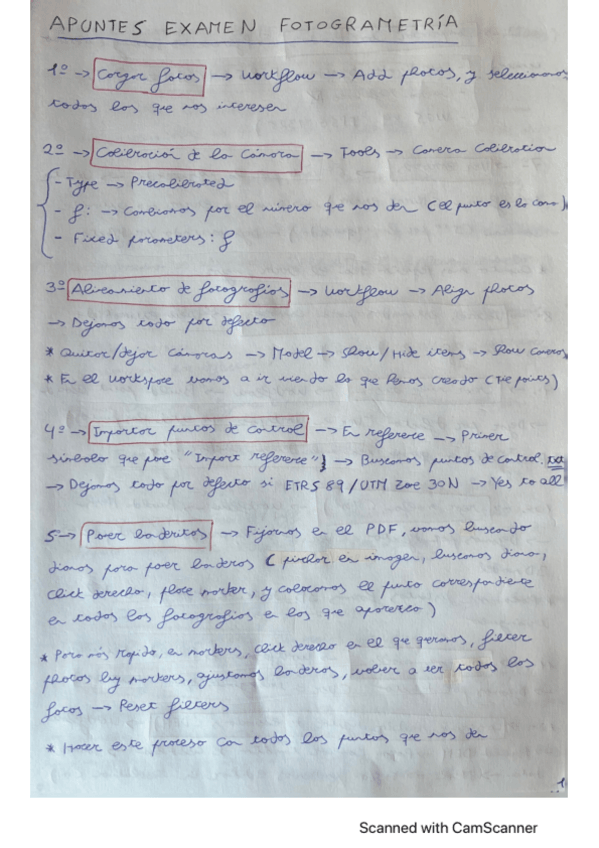 APUNTES EXAMEN FOTOGRAMETRÍA
1º → Cargar fotos → Workflow → Add photos, y seleccionamos
todas las que nos interesen
2º → Calibración de la Cámara → Tools → Camera Calibration
- Type → Precalibrated
- f: → Cambiamos por el número que nos den (el punto es la coma)
- Fixed parameters: f
3º Alineamiento de fotografías → Workflow → Align photos
→ Dejamos todo por defecto
* Quitar/dejar cámaras → Model → Show/Hide items → Show cameras
* En el workspace vamos a ir viendo lo que hemos creado (Tie points)
4º → Importar puntos de control → En reference → Primer
símbolo que pone "Import reference" → Buscamos puntos de control.txt
→ Dejamos todo por defecto si ETRS 89/UTM Zone 30N → Yes to all
5 → Poner banderitas → Fijarnos en el PDF, vamos buscando
dianas para poner banderas (pinchar en imagen, buscamos diana,
click derecho, place marker, y colocamos el punto correspondiente
en todas las fotografías en las que aparezca)
* Para más rápido, en markers, click derecho en el que queramos, filter
photos by markers, ajustamos banderas, volver a ver todas las
fotos → Reset filters
* Hacer este proceso con todos los puntos que nos den
1
Scanned with CamScanner